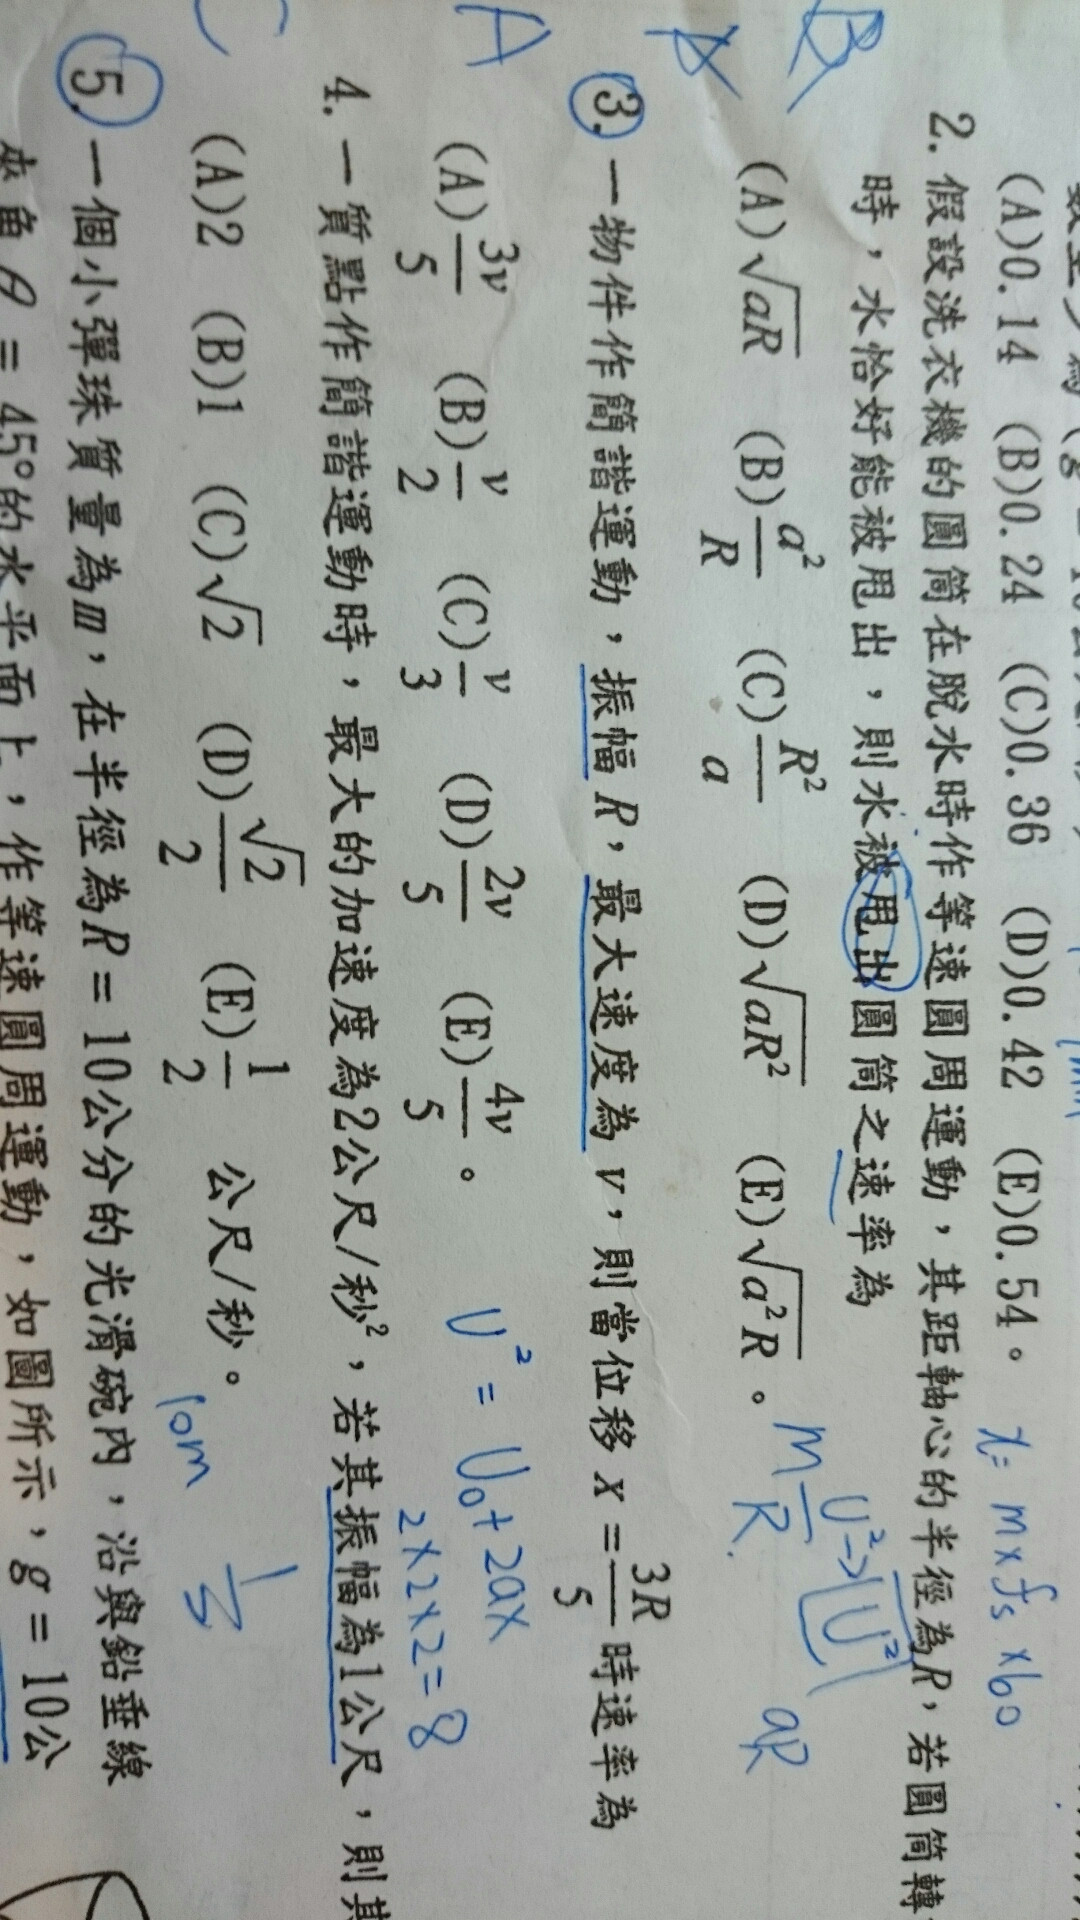 (A)0.14 (B)0.24 (C)0.36 (D)0.42 (E)0.54。
x = m x fs x 60
2. 假設洗衣機的圓筒在脫水時作等速圓周運動，其距軸心的半徑為R，若圓筒轉
時，水恰好能被甩出，則水被甩出圓筒之速率為
B
(A)√aR (B)a²/R (C)R²/a (D)√aR² (E)√a²R。
aR
3. 一物件作簡諧運動，振幅R，最大速度為v，則當位移 x = 3R/5 時速率為
A
(A)3v/5 (B)v/2 (C)v/3 (D)2v/5 (E)4v/5。
U² = U₀ + 2ax
2x2x2=8
4. 一質點作簡諧運動時，最大的加速度為2公尺/秒²，若其振幅為1公尺，則其
C
(A)2 (B)1 (C)√2 (D)√2/2 (E)1/2 公尺/秒。
10m
5. 一個小彈珠質量為m，在半徑為R = 10公分的光滑碗內，沿與鉛垂線
夾角θ = 45°的水平面上，作等速圓周運動，如圖所示，g = 10公